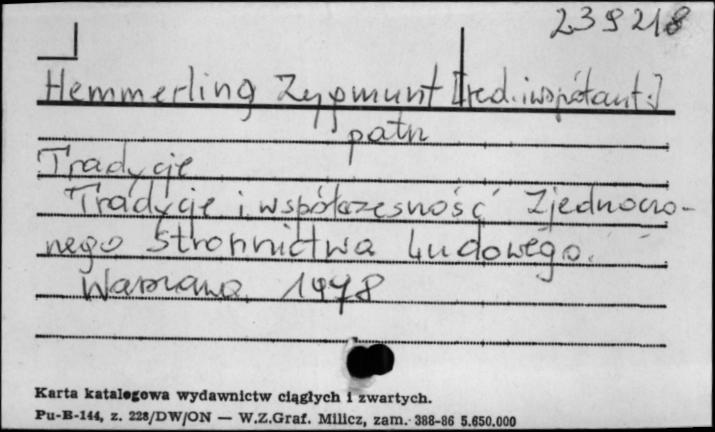 239218
Hemmerling Zygmunt [red. i współaut.]
patrz
Tradycje
Tradycje i współczesność Zjednoczo-
nego Stronnictwa Ludowego.
Warszawa 1978
Karta katalogowa wydawnictw ciągłych i zwartych.
Pu-B-144, z. 228/DW/ON — W.Z.Graf. Milicz, zam. 388-86 5.650.000